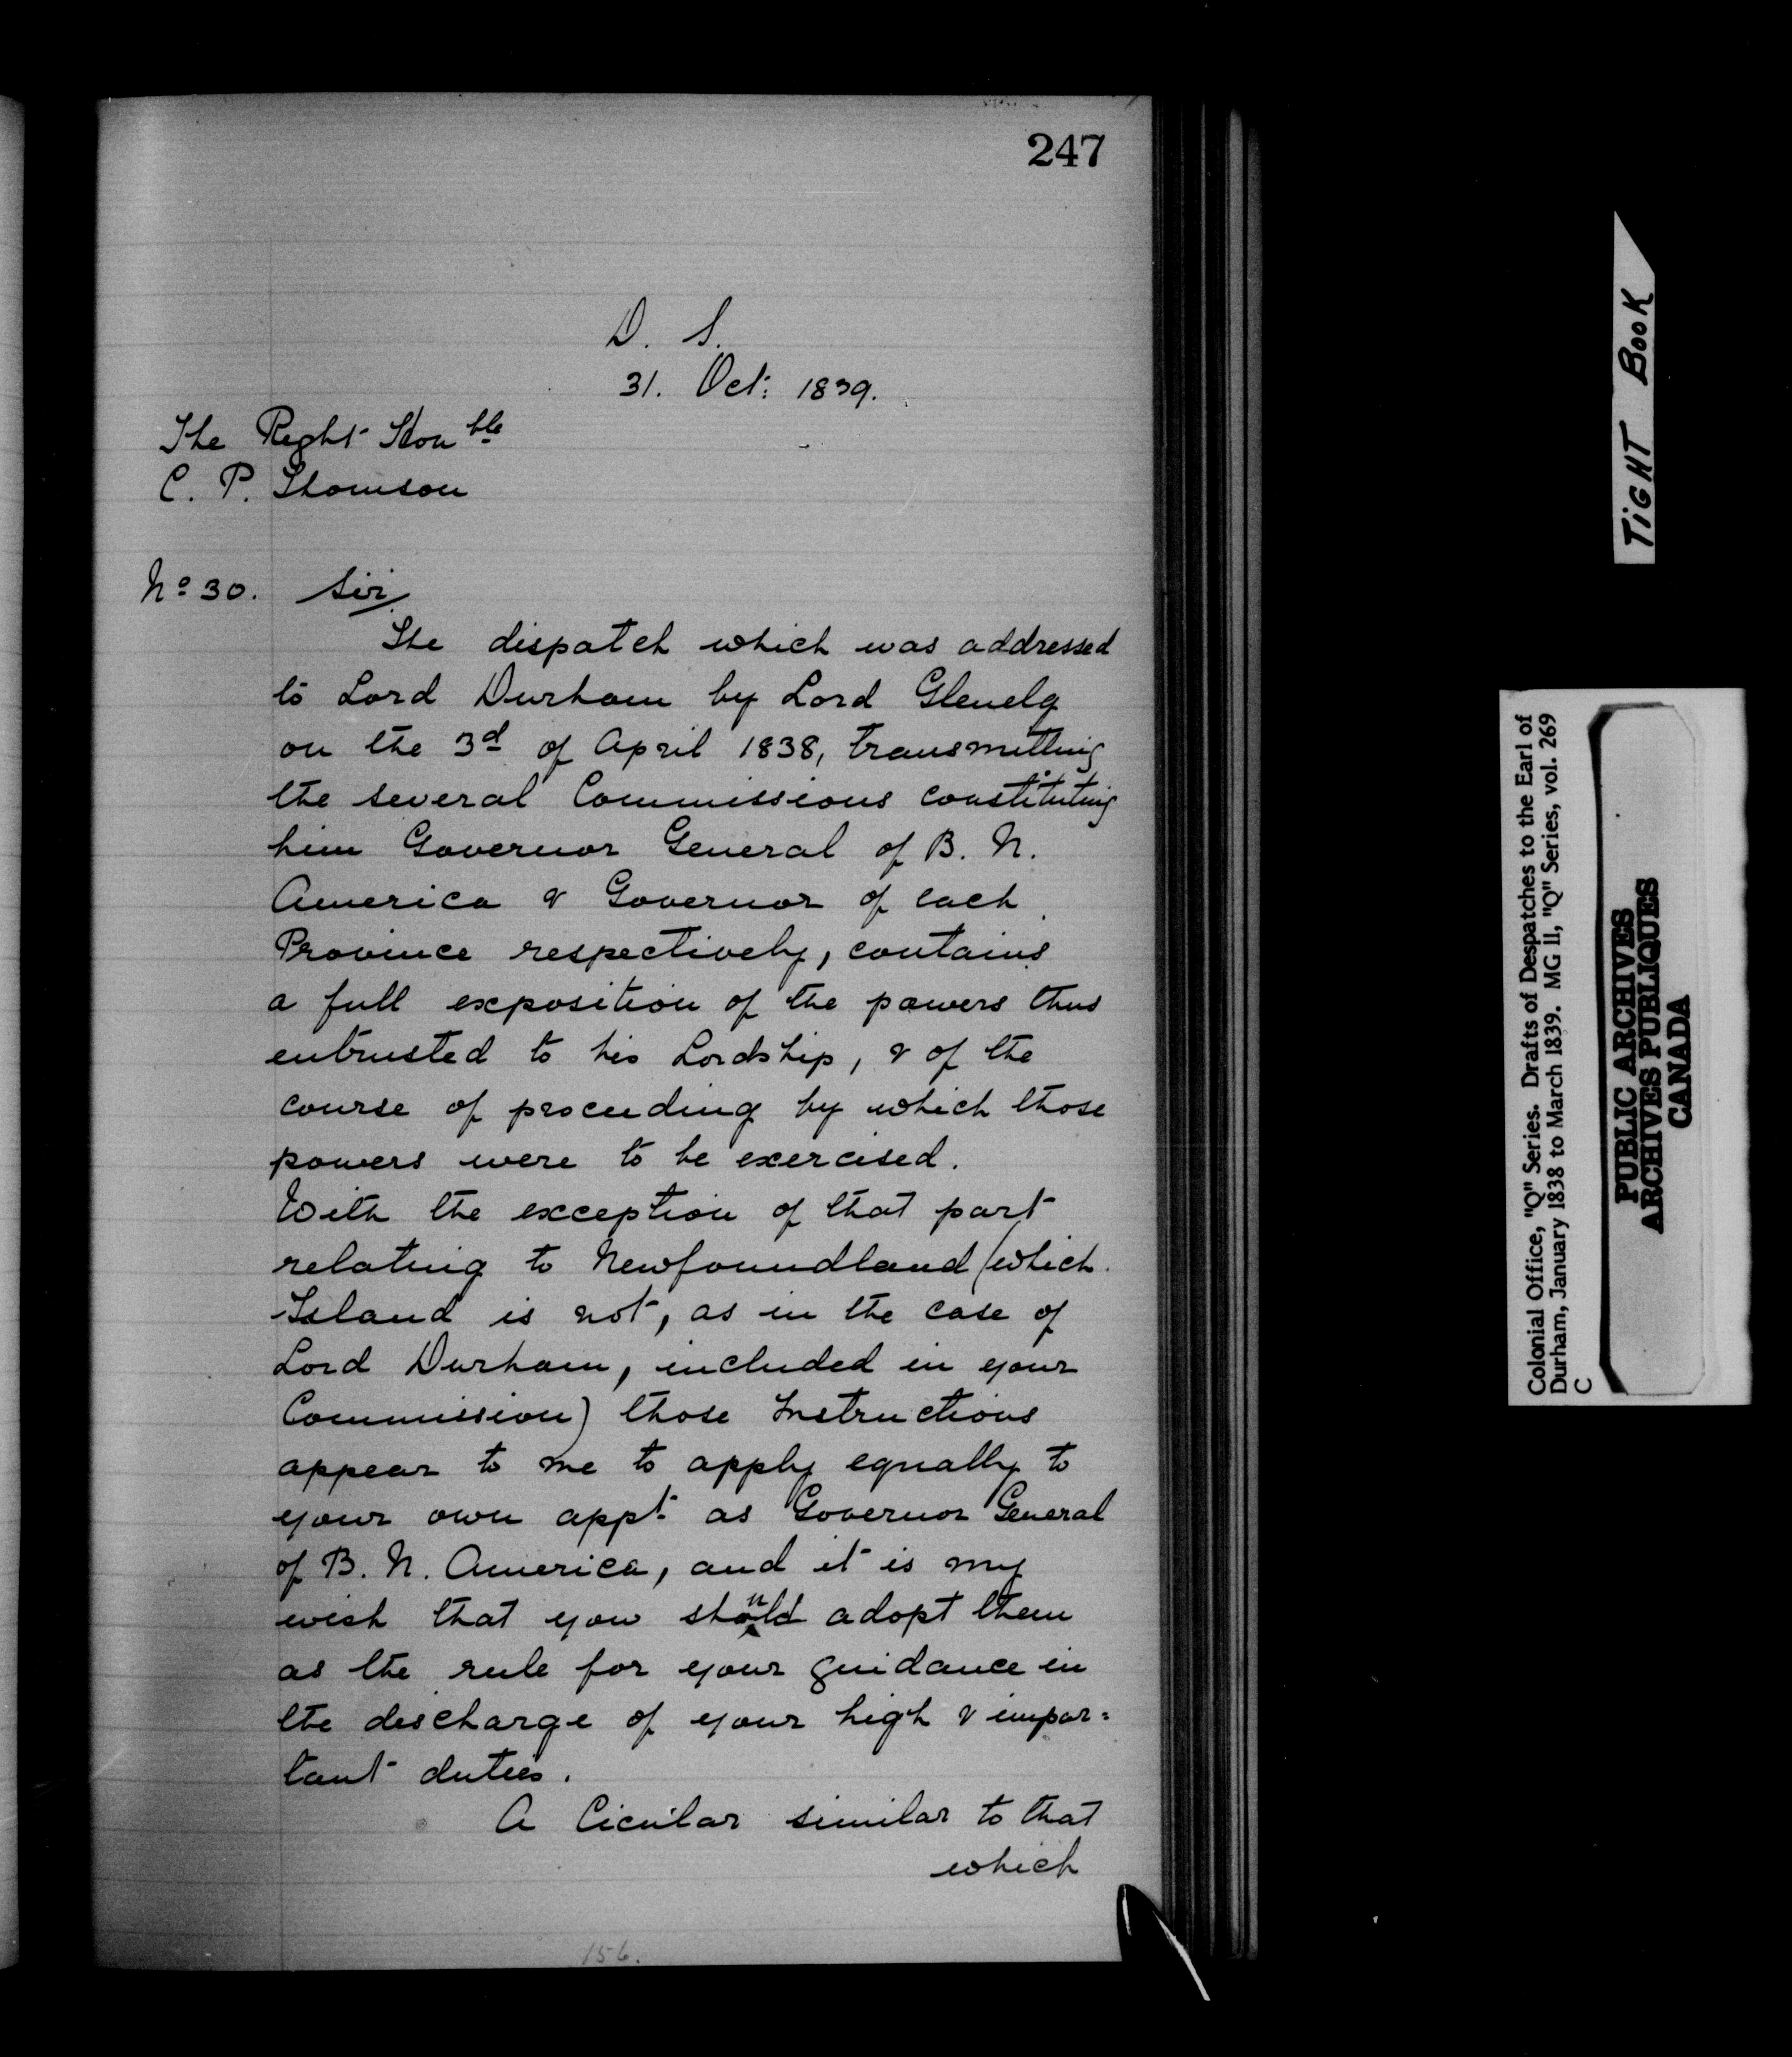 247
D. S.
31. Oct: 1839.
The Right Hon ble
C. P. Thomson
No 30. Sir,
The dispatch which was addressed
to Lord Durham by Lord Glenelg
on the 3d of April 1838, transmitting
the several Commissions constituting
him Governor General of B. N.
America & Governor of each
Province respectively, contains
a full exposition of the powers thus
entrusted to his Lordship, & of the
course of proceeding by which those
powers were to be exercised.
With the exception of that part
relating to Newfoundland (which
Island is not, as in the case of
Lord Durham, included in your
Commission) those Instructions
appear to me to apply equally to
your own appt as Governor General
of B. N. America, and it is my
wish that you should adopt them
as the rule for your guidance in
the discharge of your high & impor=
tant duties.
A Cicular similar to that
which
156.
TIGHT BOOK
Colonial Office, "Q" Series. Drafts of Despatches to the Earl of
Durham, January 1838 to March 1839. MG 11, "Q" Series, vol. 269
C
PUBLIC ARCHIVES
ARCHIVES PUBLIQUES
CANADA